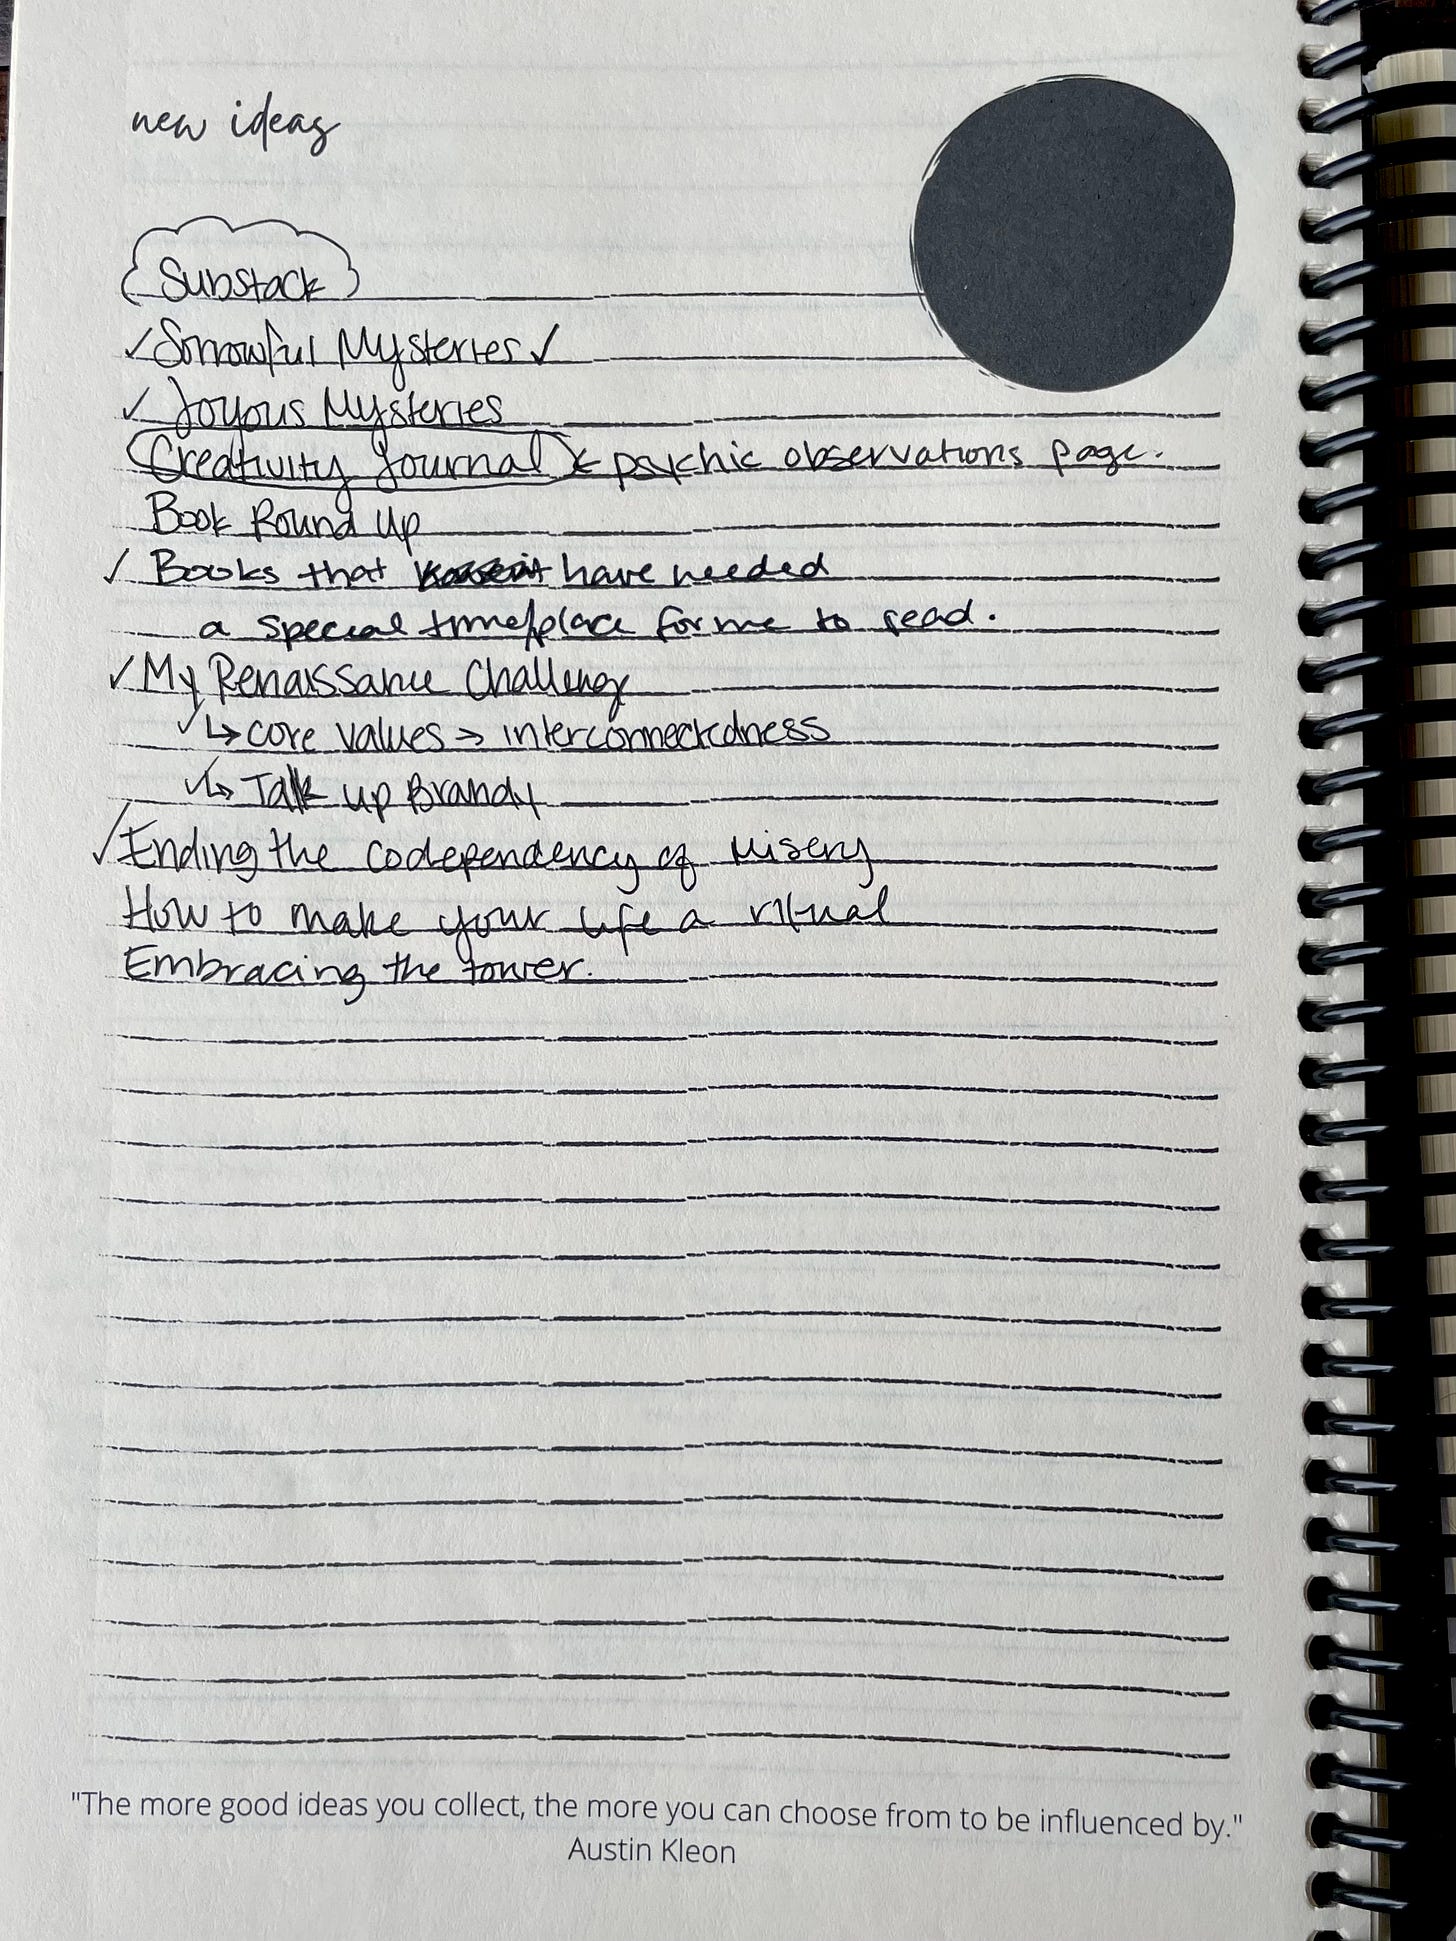 new ideas
Substack
✓ Sorrowful Mysteries ✓
✓ Joyous Mysteries
Creativity Journal psychic observations page.
Book Round Up
✓ Books that have needed
a special time/place for me to read.
✓ My Renaissance Challenge
✓ ↳ core values → interconnectedness
✓ ↳ Talk up Brandy
✓ Ending the codependency of Misery
How to make your life a ritual
Embracing the tower.
"The more good ideas you collect, the more you can choose from to be influenced by."
Austin Kleon